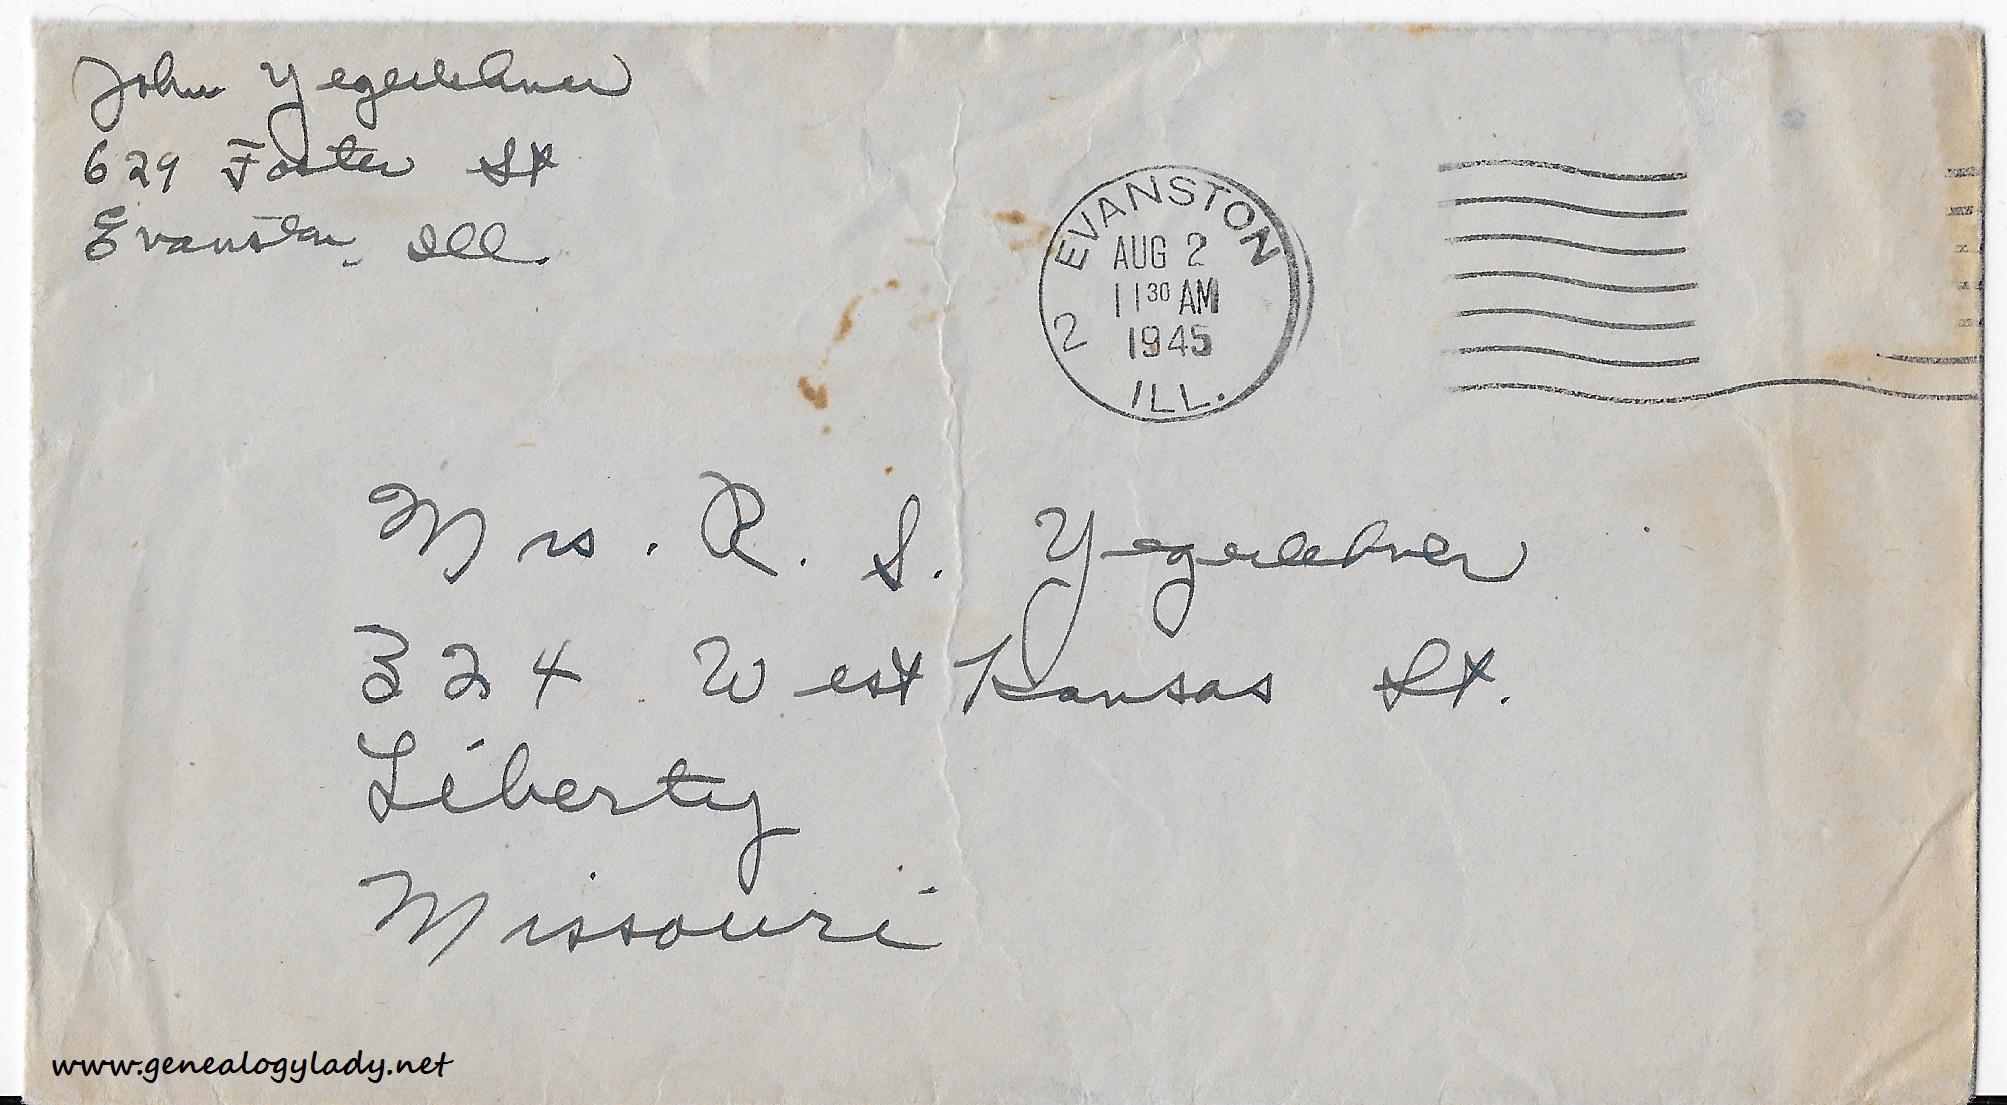 John Yegerlehner
629 Foster St
Evanston, Ill.
EVANSTON
AUG 2
11 30 AM
1945
2
ILL.
Mrs. R. S. Yegerlehner
324 West Kansas St.
Liberty
Missouri
www.genealogylady.net